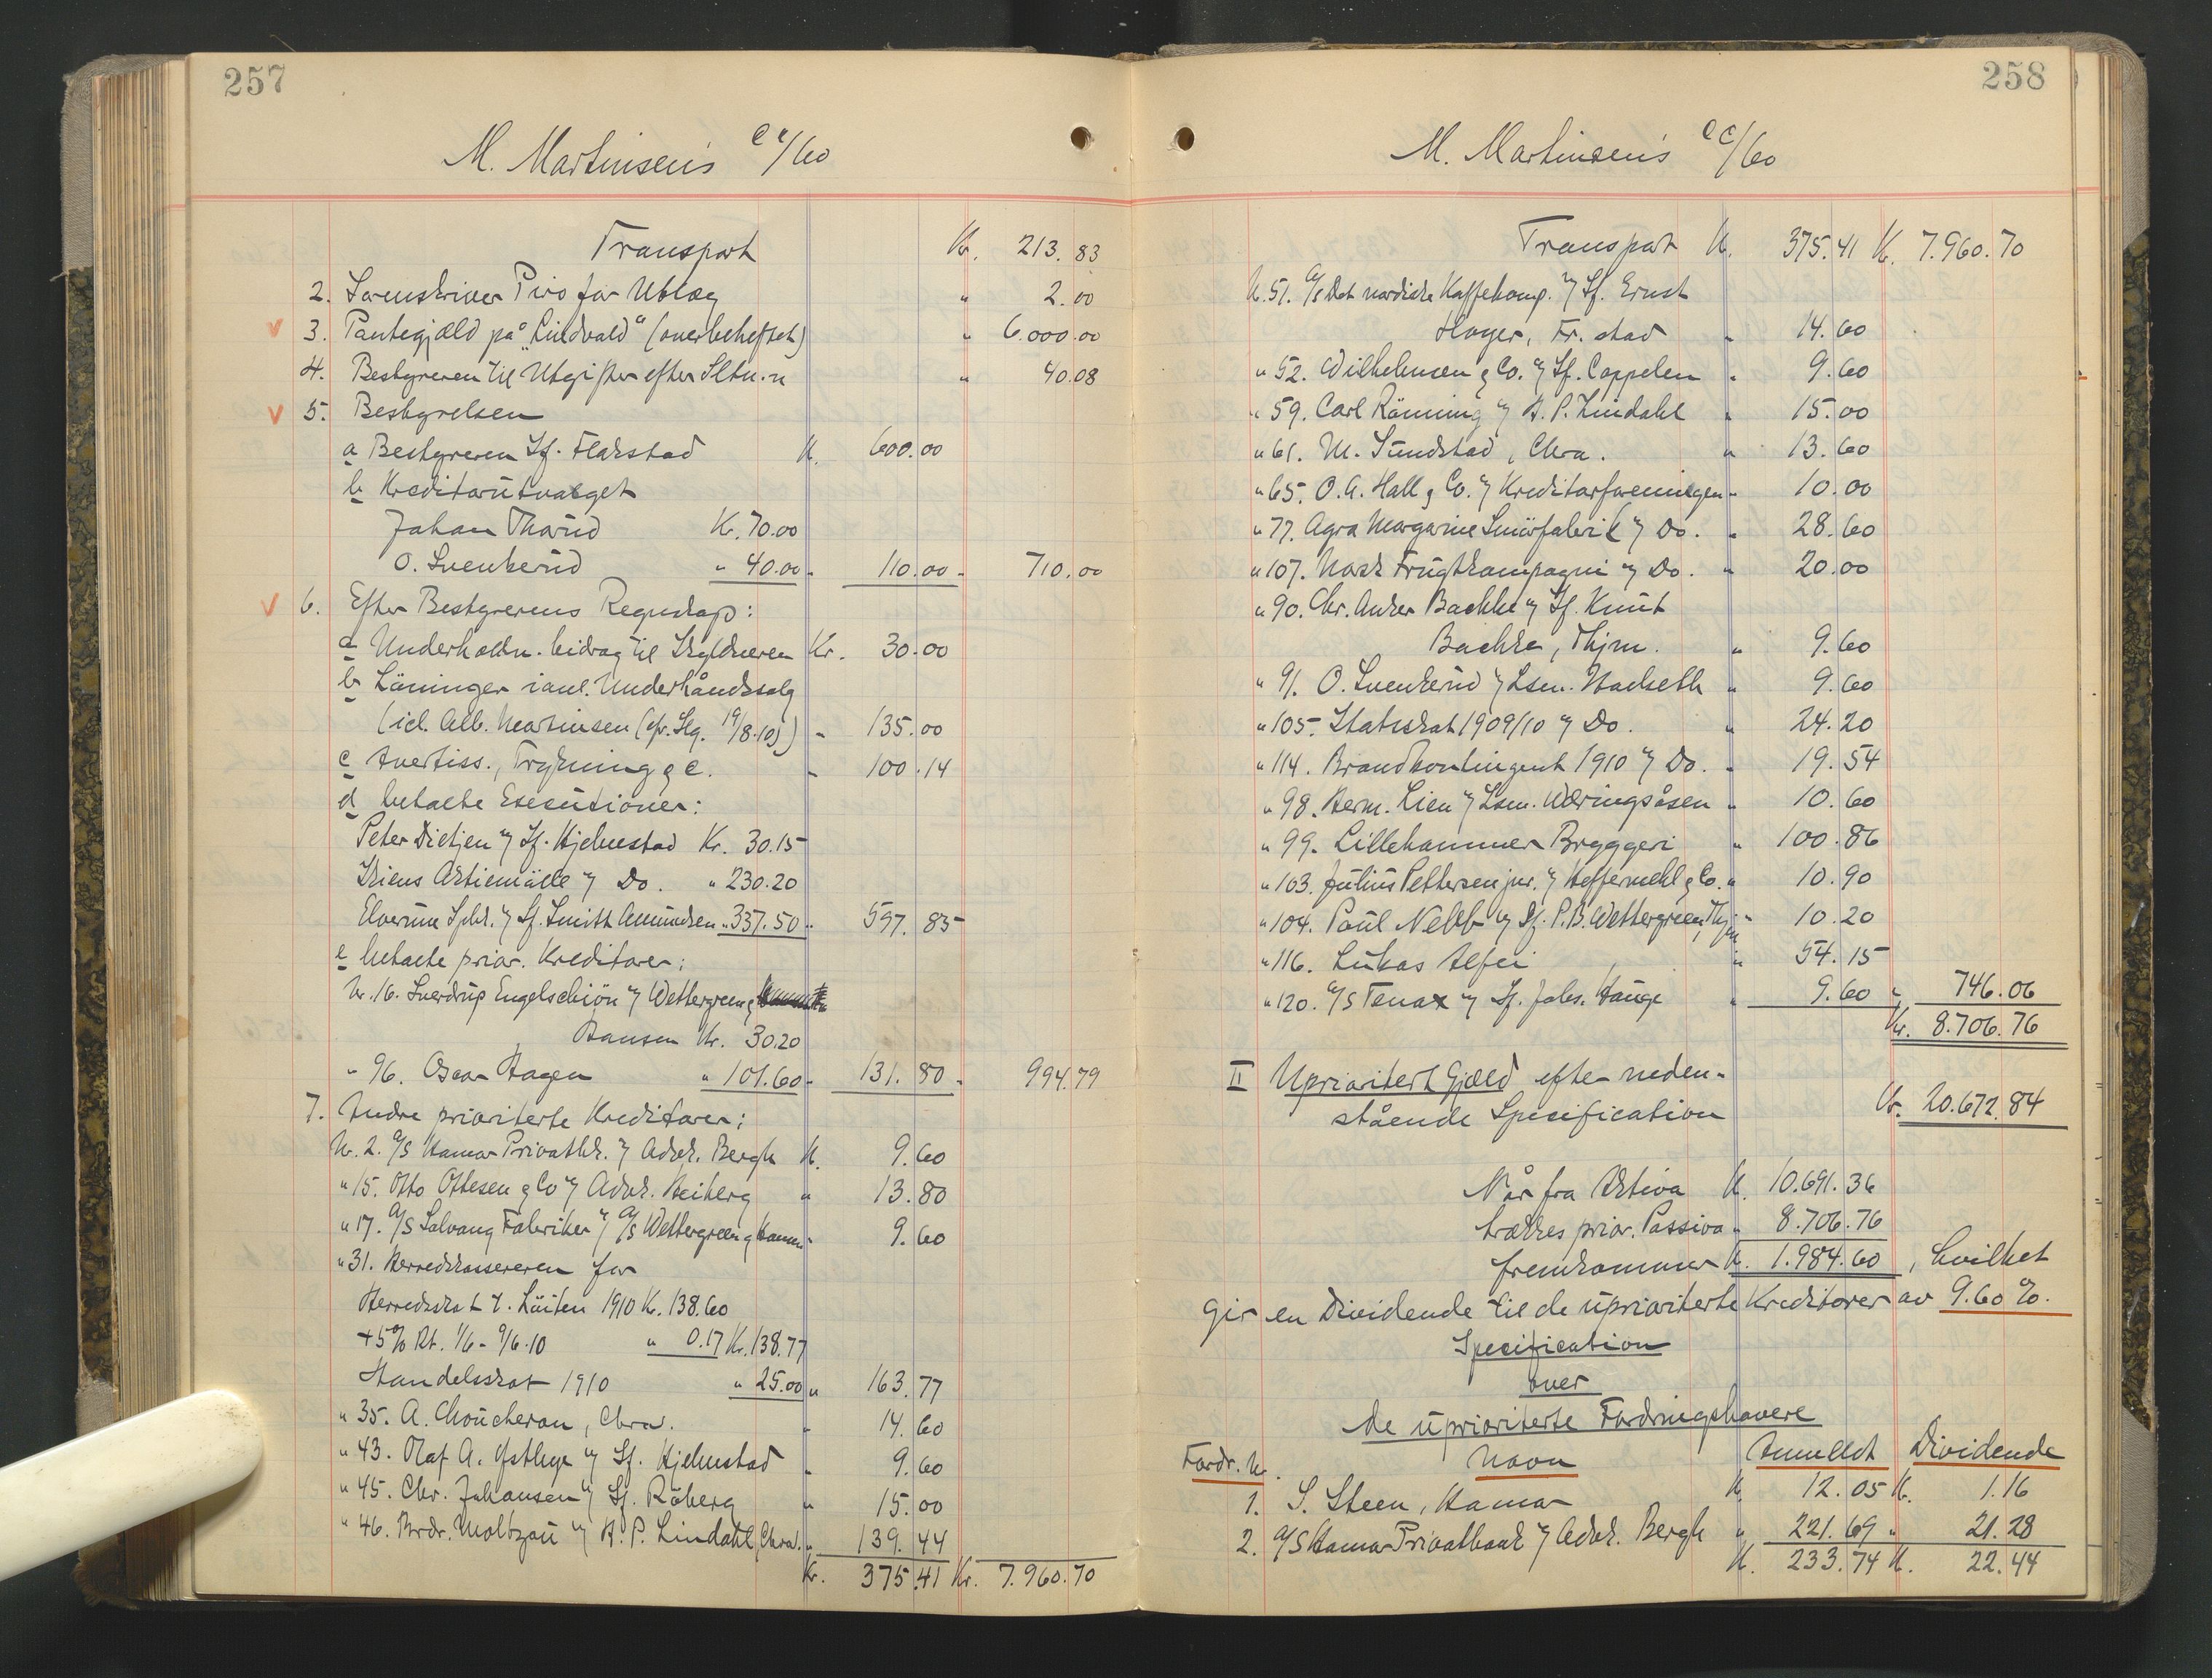 257
M. Martinsen's /60
Transport Kr. 213.83
2. Sorenskriver Piro for Utlæg " 2.00
v 3. Pantegjæld på "Lindvald" (overbeheftet) " 6.000.00
4. Bestyreren til Utgifter efter Sltn. " 40.08
v 5. Bestyrelsen
a Bestyreren Sf. Flakstad K. 600.00
b Kreditorutvalget
Johan Thorud Kr. 70.00
O. Svenkerud " 40.00 " 110.00 " 710.00
v 6. Efter Bestyrerens Regnskap:
a Underholdn. bidrag til Skyldneren Kr. 30.00
b Lönninger i anl. Underhåndssalg
(icl. Alb. Martinsen (cfr. Slg. 19/8.10)) " 135.00
c Avertiss., Trykning & c. " 100.14
d betalte Executioner:
Peter Dietjen v/ Sf. Hjelmstad Kr. 30.15
Skiens Aktiemölle v/ Do. " 230.20
Elverum Spbk. v/ Sf. Smith Amundsen " 337.50 " 597.85
e betalte prior. Kreditorer:
Nr. 16. Sverdrup Engelschiön v/ Wettergreen &
Hansen Kr. 30.20
" 96. Oscar Hagen " 101.60 " 131.80 " 994.79
7. Andre prioriterte Kreditorer:
Nr. 2. A/S Hamar Privatbk. v/ Advk. Bergh K. 9.60
" 15. Otto Ottesen & Co v/ Advk. Heiberg " 13.80
" 17. A/S Salvang Fabriker v/ A/S Wettergreen & Hansen " 9.60
" 31. Herredskassereren for
Herredsskat t. Löiten 1910 K. 138.60
+ 5% Rt. 1/6 - 9/6.10 " 0.17 Kr. 138.77
Handelsskat 1910 " 25.00 " 163.77
" 35. A. Choucheron, Chra. " 14.60
" 43. Olaf A. Østbye v/ Sf. Hjelmstad " 9.60
" 45. Chr. Johansen v/ Sf. Råberg " 15.00
" 46. Brdr. Moltzau v/ H. P. Lindahl, Chra. " 139.44
Kr. 375.41 Kr. 7.960.70
258
M. Martinsen's /60
Transport K. 375.41 K. 7.960.70
N. 51. A/S Det nordiske Kaffekomp. v/ Sf. Ernst
Hoyer, Fr.stad " 14.60
" 52. Wilhelmsen & Co. v/ Sf. Cappelen " 9.60
" 59. Carl Rönning v/ H. P. Lindahl " 15.00
" 61. M. Sundstad, Chra. " 13.60
" 65. O. A. Hall & Co. v/ Kreditorforeningen " 10.00
" 77. Agra Margarine Smörfabrik v/ Do. " 28.60
" 107. Norsk Frugtkompagni v/ Do. " 20.00
" 90. Chr. Anker Bachke v/ Sf. Knut
Bachke, Thjm. " 9.60
" 91. O. Svenkerud v/ Lsm. Hadseth " 9.60
" 105. Statsskat 1909/10 v/ Do. " 24.20
" 114. Brandkontingent 1910 v/ Do. " 19.54
" 98. Herm. Lien v/ Lsm. Wæringsåsen " 10.60
" 99. Lillehammer Bryggeri " 100.86
" 103. Julius Pettersen jnr. v/ Heffermehl & Co. " 10.90
" 104. Paul Nebb v/ Sf. P. B. Wettergreen, Thjm " 10.20
" 116. Lukas Alfei " 54.15
" 120. A/S Tenax v/ Sf. Johs. Hauge " 9.60 " 746.06
Kr. 8.706.76
II Uprioritert Gjæld efter neden-
stående Specification Kr. 20.672.84
Når fra Aktiva K. 10.691.36
trækkes prior. Passiva " 8.706.76
fremkommer K. 1.984.60, hvilket
gir en Dividende til de uprioriterte Kreditorer av 9.60 %.
Specification
over
de uprioriterte Fordringshavere
Fordr. N. Navn Anmeldt Dividende
1. S. Steen, Hamar K. 12.05 K. 1.16
2. A/S Hamar Privatbank v/ Advk. Bergh " 221.69 " 21.28
K. 233.74 K. 22.44